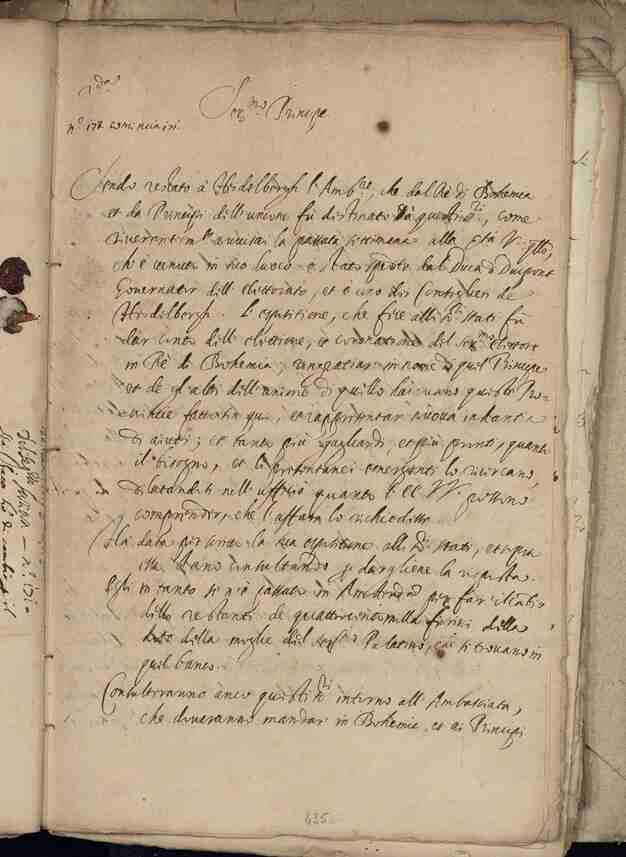 2da
n.o 172 comincia ri.
Ser.mo Principe
Sendo restato à Heidelbergh l'Amb.re, che dal Rè di Bohemia
et da Principi dell'unione fù destinato à questi SS.ri, come
riverentem.te avvisai la passata settimana alla S.tà V.
ch'è venuto in suo luoco è stato spedito dal Duca di Duponti
Governator dell'Elettorato, et è uno dei Consiglieri de
Heidelbergh. L'espositione, che fece alli SS.ri Stati fù
dar conto dell'elettione, et coronatione del Ser.mo Elettore
in Rè di Bohemia; ringratiar in nome di quel Principe
et de gl'altri dell'unione di quello haveano queste Pro-
vincie fatto fin qui, et rappresentar nuova instantia
di aiuti; et tanto più gagliardi, et più pronti, quanto
il bisogno, et le emergenti lo ricercano,
dilatandosi nell'ufficio quanto l'EE. VV. possono
comprender, che l'affare lo richiedesse.
Ha data per scritto la sua espositione alli SS.ri Stati, et sopra
essa stano consultando per dargliene la risposta.
Egli in tanto si è passato in Amsterdam per far
delli restanti de quattrocento mille fiorini della
dote della moglie del Palatino, che si trovano in
quel banco.
Consulteranno anco questi SS.ri intorno all'Ambasciata,
che doveranno mandar in Bohemia, et ai Principi
635